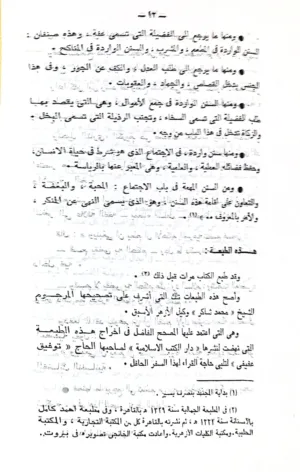 — ١٣ —
• ومنها ما يرجع الى الفضيلة التى تسمى عفة ، وهذه صنفان :
السنن الواردة فى المطعم ، والمشرب ، والسنن الواردة فى المناكح .
• ومنها ما يرجع الى طلب العدل ، والكف عن الجور ، وفى هذا
الجنس يدخل القصاص ، والجهاد ، والعقوبات .
• ومنها السنن الواردة فى جمع الأموال ، وهى التى يقصد بهما
طلب الفضيلة التى تسمى السخاء ، وتجنب الرذيلة التى تسمى البخل .
والزكاة تدخل فى هذا الباب من وجه .
• ومنها سنن واردة ، فى الاجتماع الذى هو شرط فى حياة الانسان ،
وحفظ فضائله العملية ، والعلمية ، وهى المعبر عنها بالرياسة .
• ومن السنن المهمة فى باب الاجتماع : المحبة ، والبغضة ،
والتعاون على اقامة هذه السنن ، وهو الذى يسمى النهى عن المنكر ،
والأمر بالمعروف
هـذه الطبعة :
وقد طبع الكتاب مرات قبل ذلك (٢) .
وأصح هذه الطبعات تلك التى أشرف على تصحيحها المرحوم
الشيخ « محمد شاكر » وكيل الأزهر الأسبق .
وهى التى اعتمد عليها المصحح الفاضل فى اخراج هذه الطبعة
التى نهضت لنشرها « دار الكتب الاسلامية » لصاحبها الحاج « توفيق
عفيفى » لتلبى حاجة القراء لهذا السفر الحافل .
(١) بداية المجتهد بتصرف يسير .
(٢) فى المطبعة الجمالية سنة ١٣٢٩ هـ بالقاهرة ، وفى مطبعة أحمد كامل
بالآستانة سنة ١٣٣٣ هـ ، ثم نشرته بالقاهرة كل من المكتبة التجارية ، ومكتبة
الحلبى ومكتبة الكليات الأزهرية وأعادت مكتبة الخانجى تصويره فى بيروت .